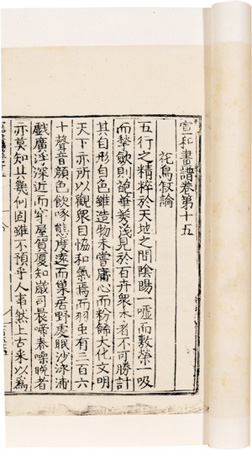 宣和畫譜卷第十五
花鳥叙論
五行之精粹於天地之間陰陽一噓而敷榮一吸
而揫歛則葩華秀茂見於百卉衆木者不可勝計
其自形自色雖造物未嘗庸心而粉飾大化文明
天下亦所以觀衆目協和氣焉而羽虫有三百六
十聲音顔色飲啄態度遠而巢居野處眠沙泳浦
戲廣浮深近而穿屋賀厦知歲司晨啼春噪晚者
亦莫知其幾何因雖不預乎人事然上古采以為